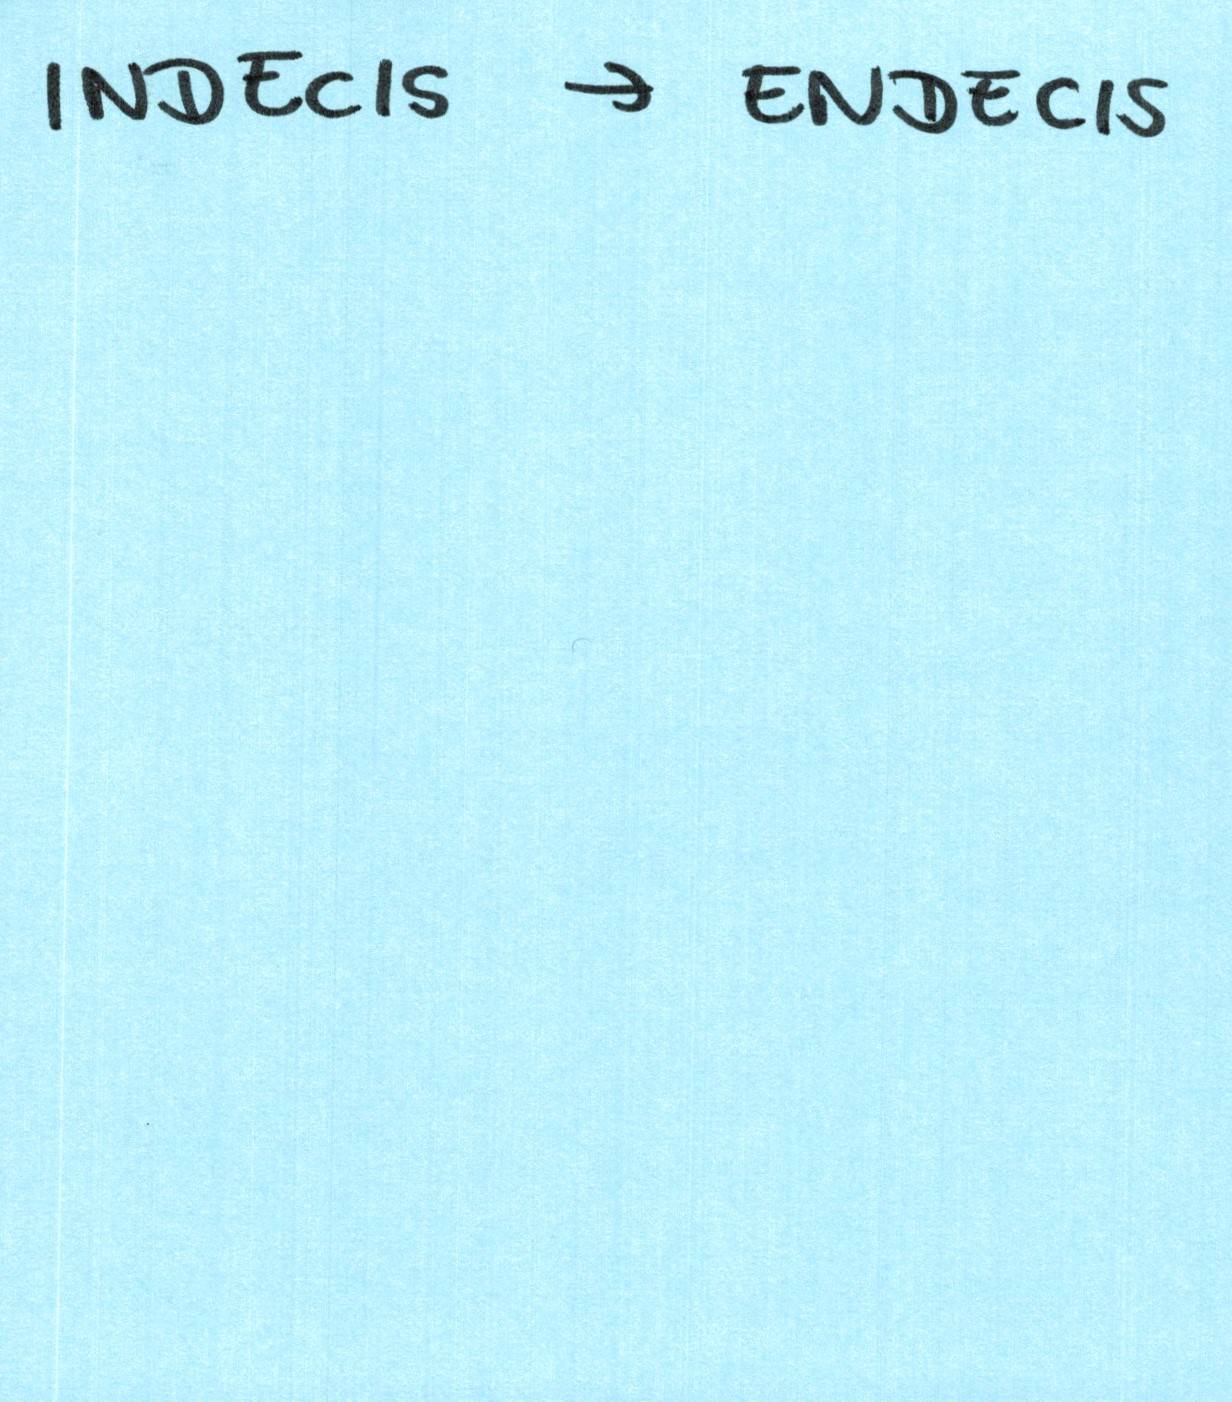 INDECIS → ENDECIS